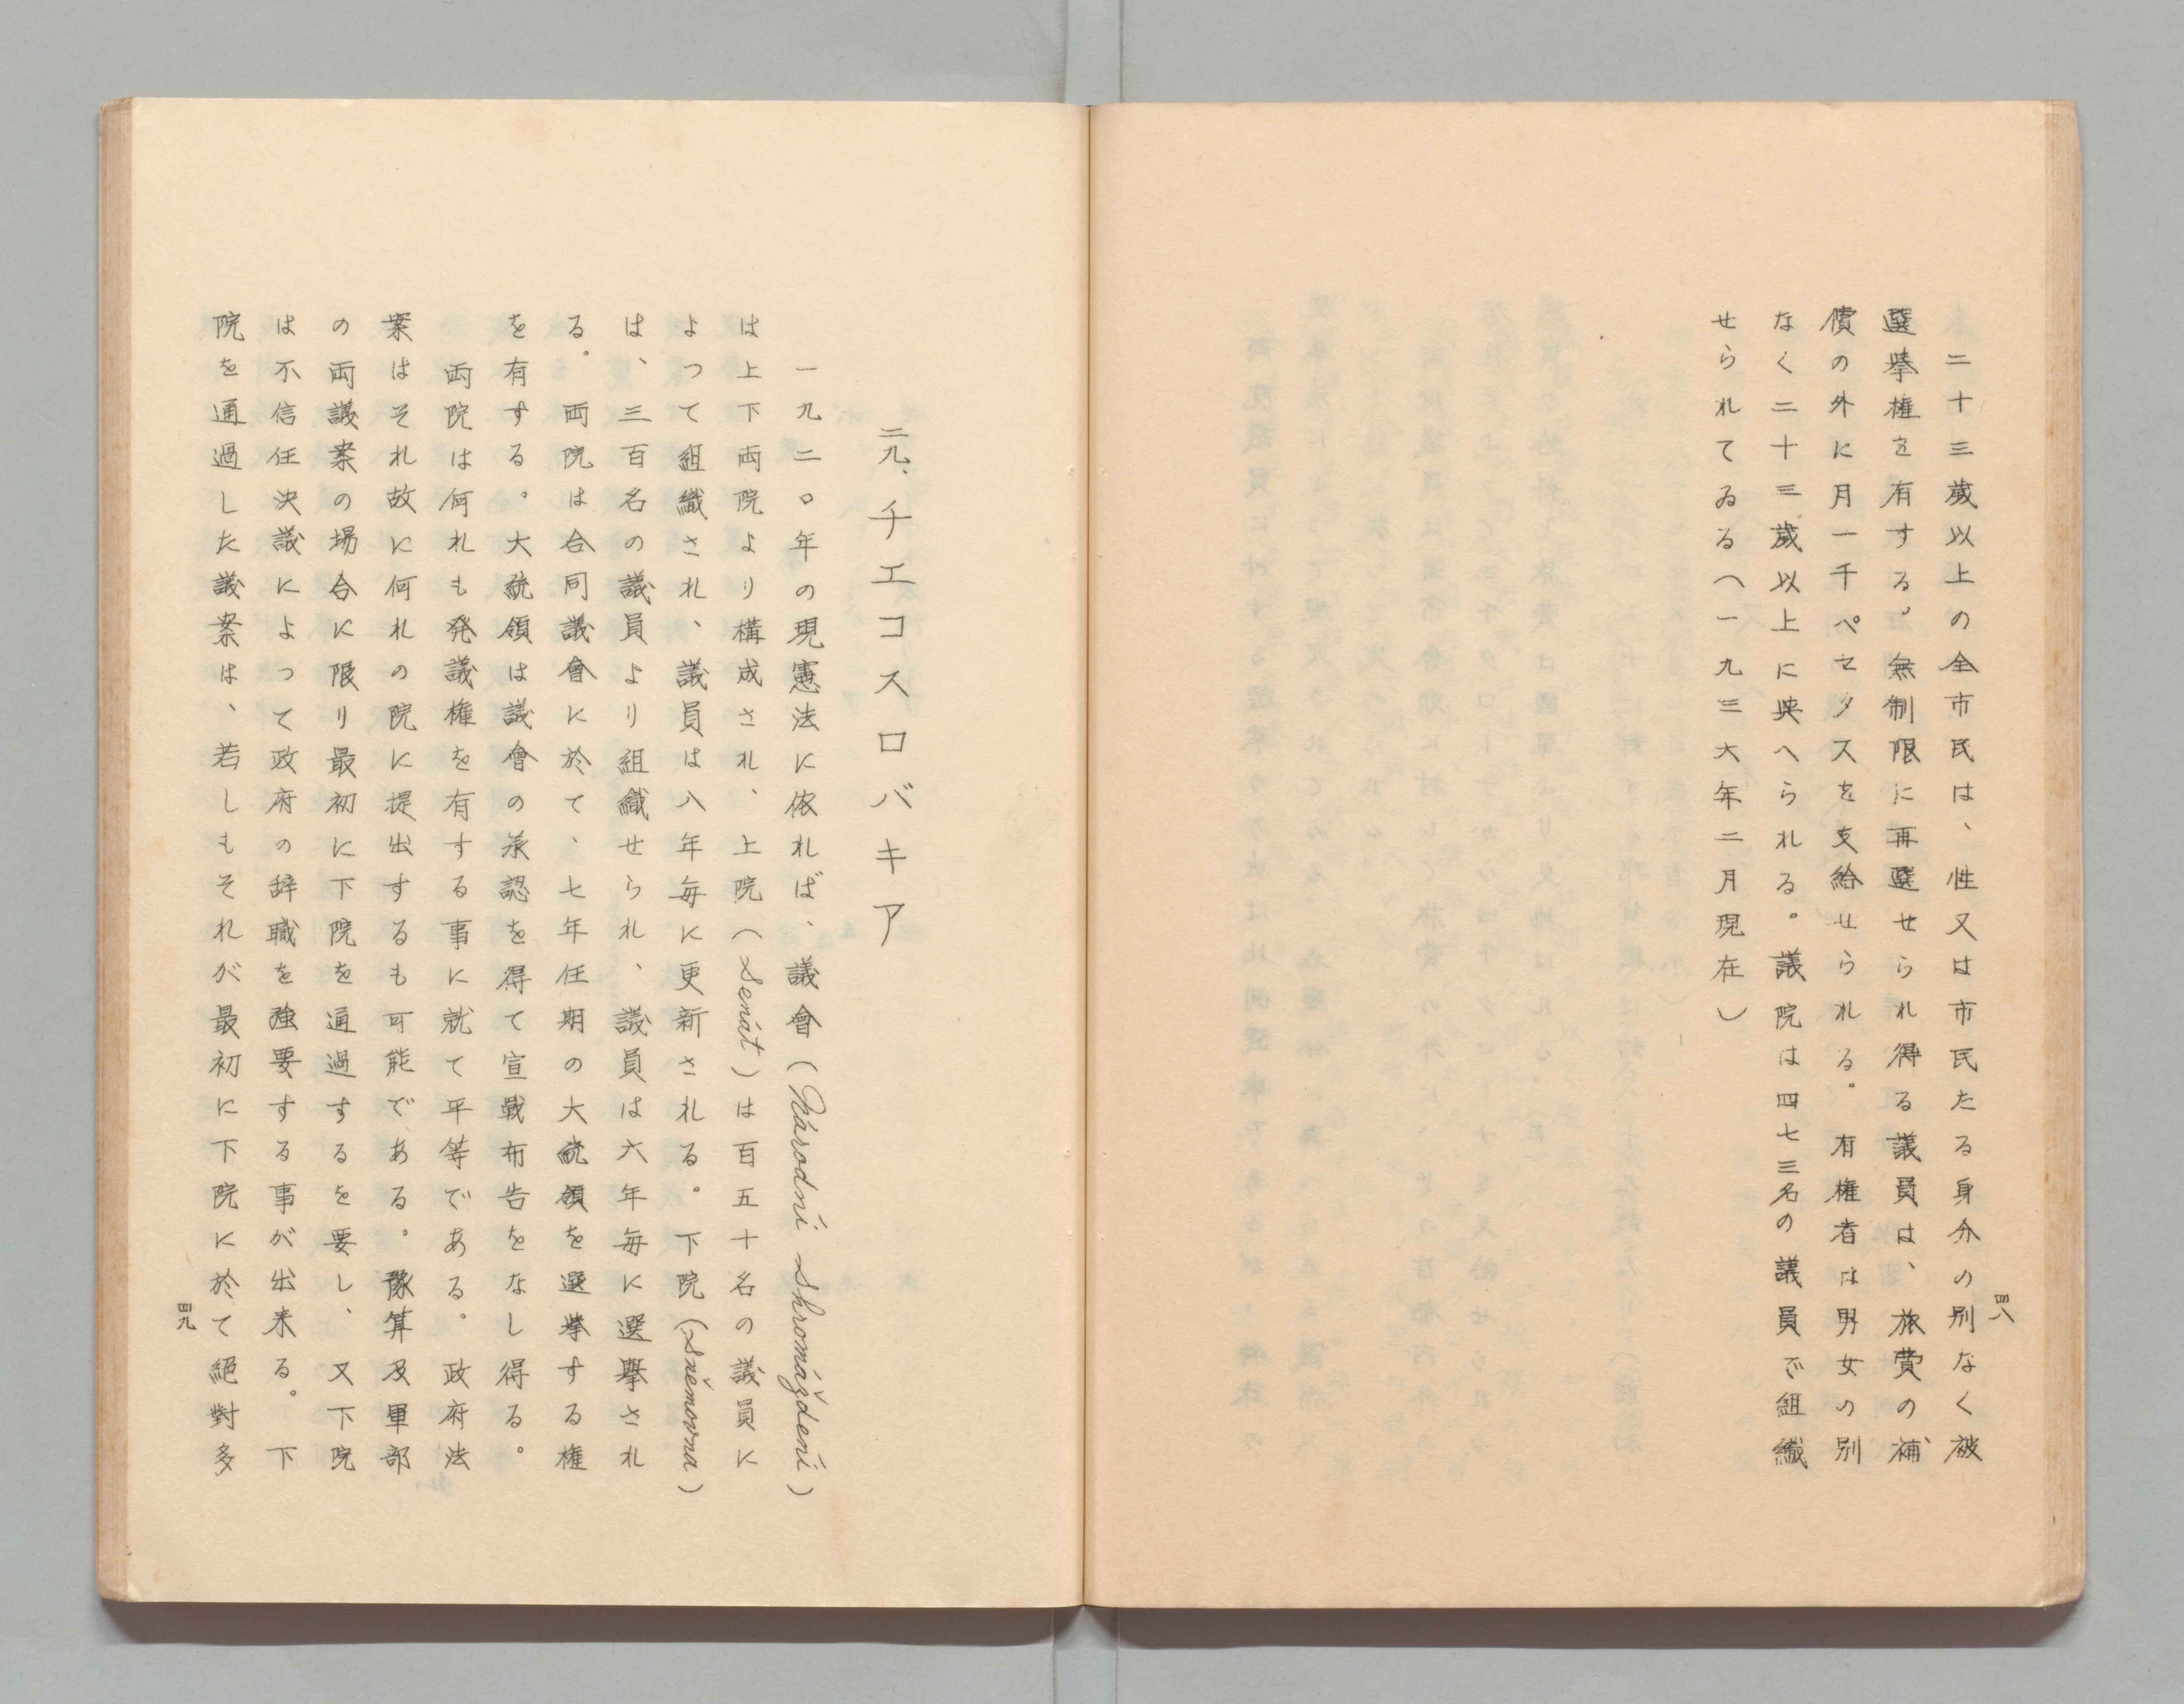 二十三歳以上の全市民は、性又は市民たる身分の別なく被
選挙権を有する。無制限に再選せられ得る議員は、旅費の補
償の外に月一千ペセタスを支給せられる。有権者は男女の別
なく二十三歳以上に与へられる。議院は四七三名の議員で組織
せられてゐる（一九三六年二月現在）
四八
二九、チエコスロバキア
一九二〇年の現憲法に依れば、議會（Národní shromáždení）
は上下両院より構成され、上院（Senát）は百五十名の議員に
よって組織され、議員は八年毎に更新される。下院（Sněmovna）
は、三百名の議員より組織せられ、議員は六年毎に選擧され
る。両院は合同議會に於て、七年任期の大統領を選挙する権
を有する。大統領は議會の承認を得て宣戰布告をなし得る。
両院は何れも発議権を有する事に就て平等である。政府法
案はそれ故に何れの院に提出するも可能である。豫算及軍部
の両議案の場合に限り最初に下院を通過するを要し、又下院
は不信任決議によって政府の辞職を強要する事が出来る。下
院を通過した議案は、若しもそれが最初に下院に於て絕對多
四九